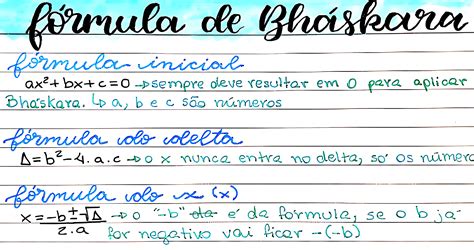 fórmula de Bháskara
fórmula inicial
ax²+bx+c=0 → sempre deve resultar em 0 para aplicar
Bháskara. ↳ a, b e c são números
fórmula do delta
Δ=b²-4.a.c → o x nunca entra no delta, só os número
fórmula do x (x)
x = -b ± √Δ → o "-b" é da fórmula, se o b já
2.a for negativo vai ficar -(-b)